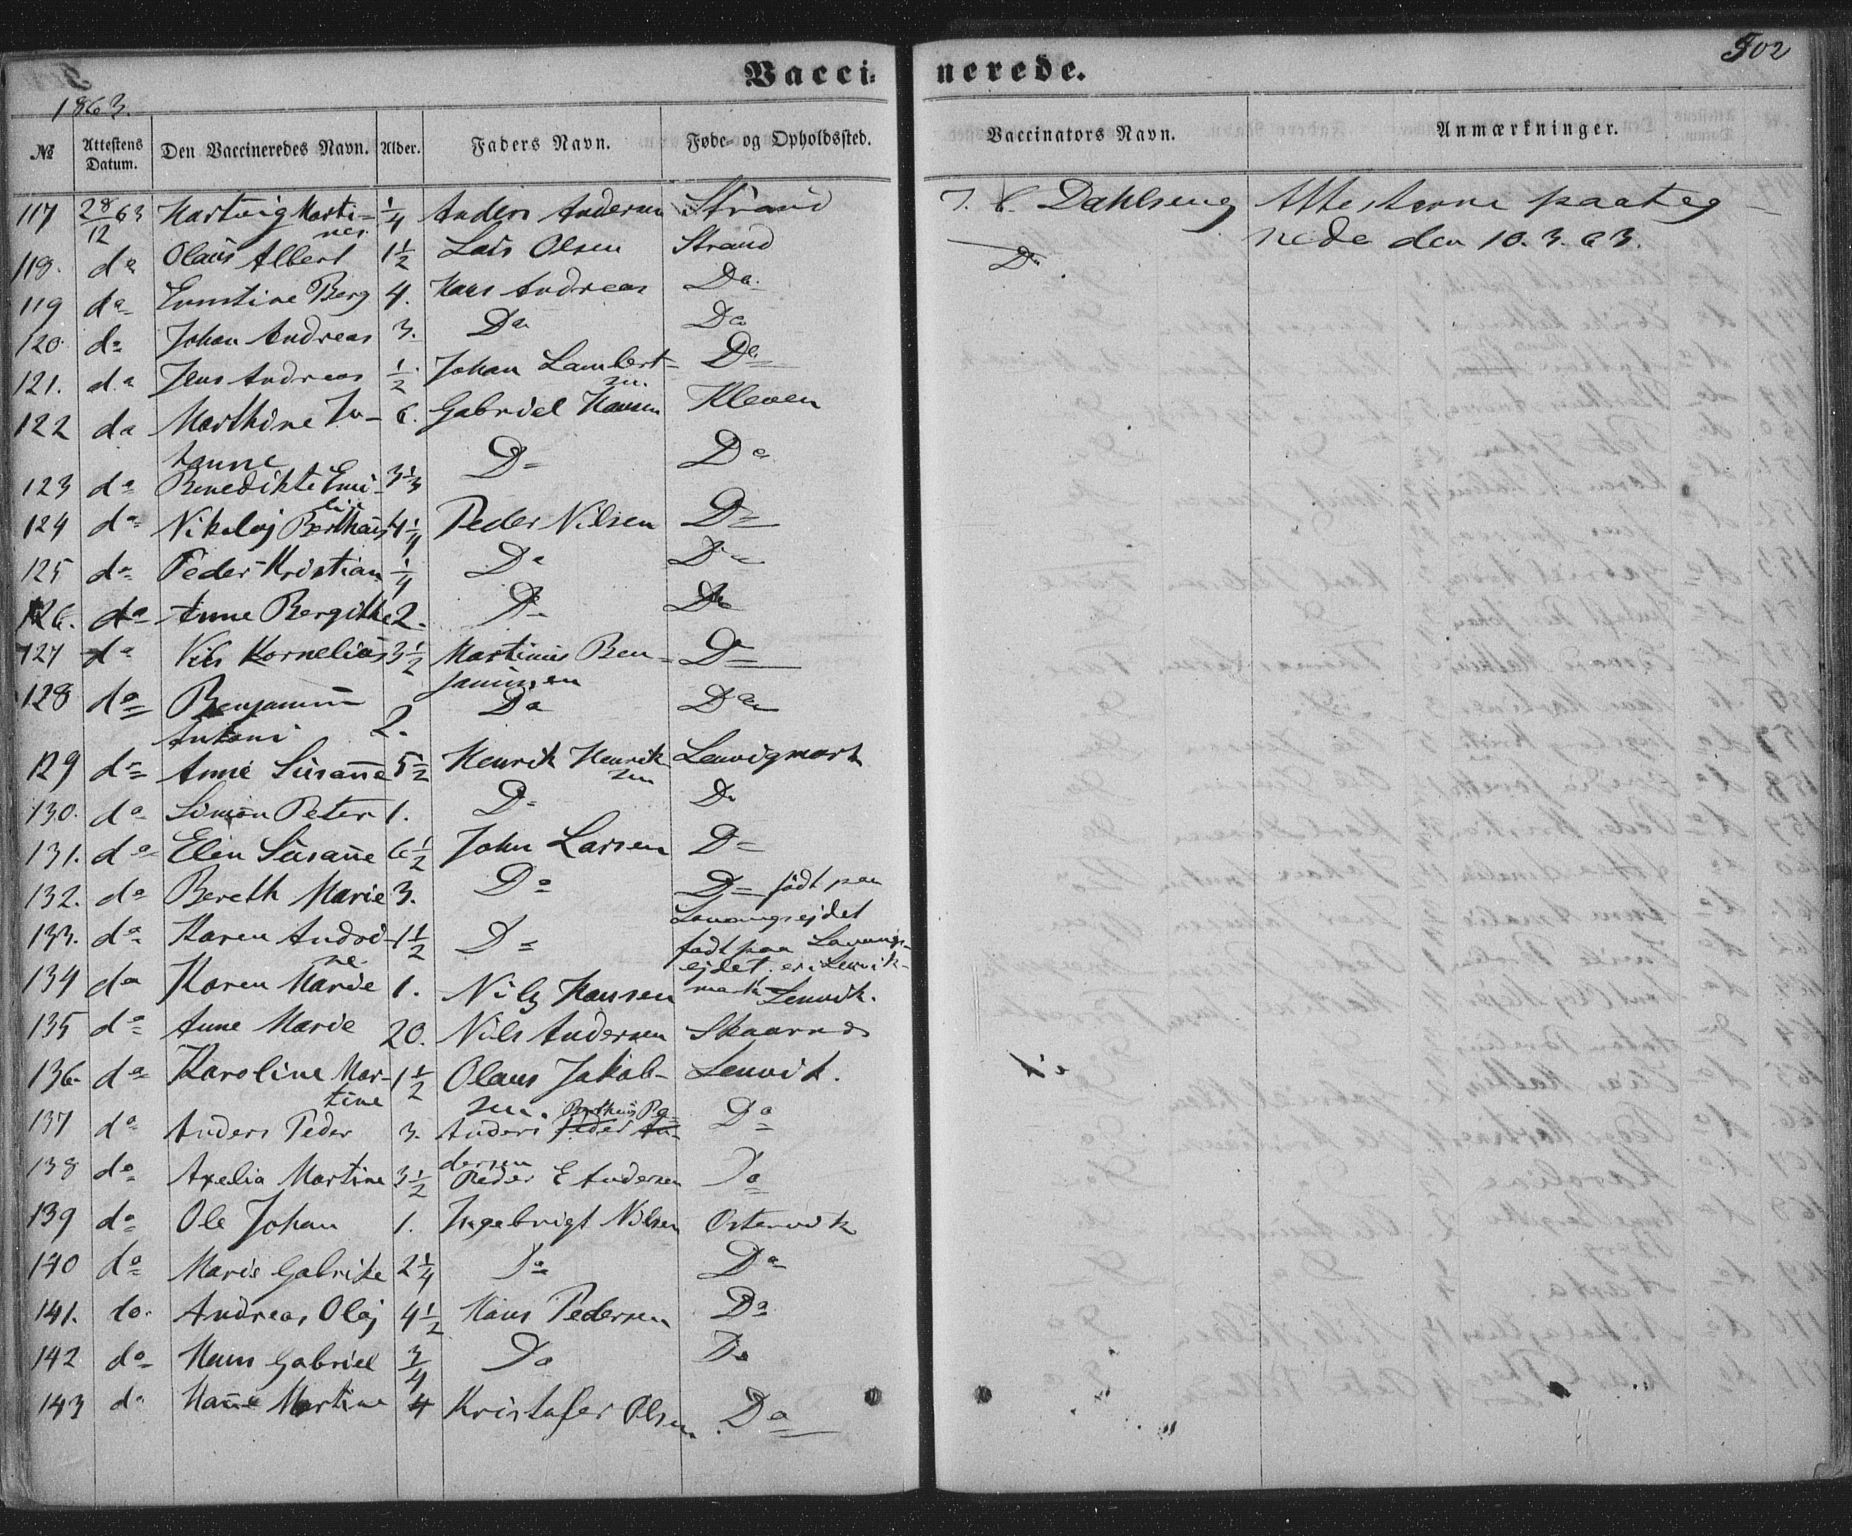 Vaccinerede.
502
1863.
№ Attestens Datum. Den Vaccineredes Navn. Alder. Faders Navn. Føde- og Opholdssted. Vaccinators Navn. Anmærkninger.
117 28/12 63 Hartvig Marti- 1/4 Anders Andersen Strand Dahlseng Attesterne paateg-
nus
118. do Olaus Albert 1 1/2 Lars Olsen Strand Do nede den 10.3.63.
119 do Ernstine Berg 4. Hans Andreas Do.
120. do Johan Andreas 3. Do Do
121. do Jens Andreas 1/2 Johan Lambert- Do
sen.
122 do Marthine Jo- 6. Gabriel Hansen Kleven
hanne
123 do Benedikte Emi- 3 1/3 Do Do
lie
124 do Nikolaj Berthäus 4 1/4 Peder Nilsen Do
125 do Peder Kristian 1/4 Do Do
126. do Anne Bergithe 2. Do Do
127 do Nils Kornelius 3 1/2 Martinus Ben- Do
jaminsen
128 do Benjamin 2. Do Do
Antoni
129 do Anne Susanne 5 1/2 Henrik Henrik- Lenvigmark
sen
130. do Simon Peter 1. Do Do
131. do Elen Susanne 6 1/2 John Larsen Do
132. do Bereth Marie 3. Do Do født paa
Lanvingsejdet
133. do Karen Andri- 1 1/2 Do født paa Lanvings-
ne ejdet. er i Lenvik-
mark
134 do Karen Marie 1. Nils Hansen Lenvik.
135 do Anne Marie 20. Niels Andersen Skaarnes
136. do Karoline Mar- 1 1/2 Olaus Jakob- Lenvik.
tine sen.
137 do Anders Peder 3. Anders Peder An- Do
Berthäus Pe-
dersen
138 do Axelia Martine 3 1/2 Peder E Andersen Do
139 do Ole Johan 1. Ingebrigt Nilsen Ostervik
140 do Maris Gabrike 2 1/4 Do Do
141. do. Andreas Olaj 4 1/2 Hans Pedersen Do
142 do Hans Gabriel 3/4 Do Do
143 do Hanne Martine 4 Kristofer Olsen. Do